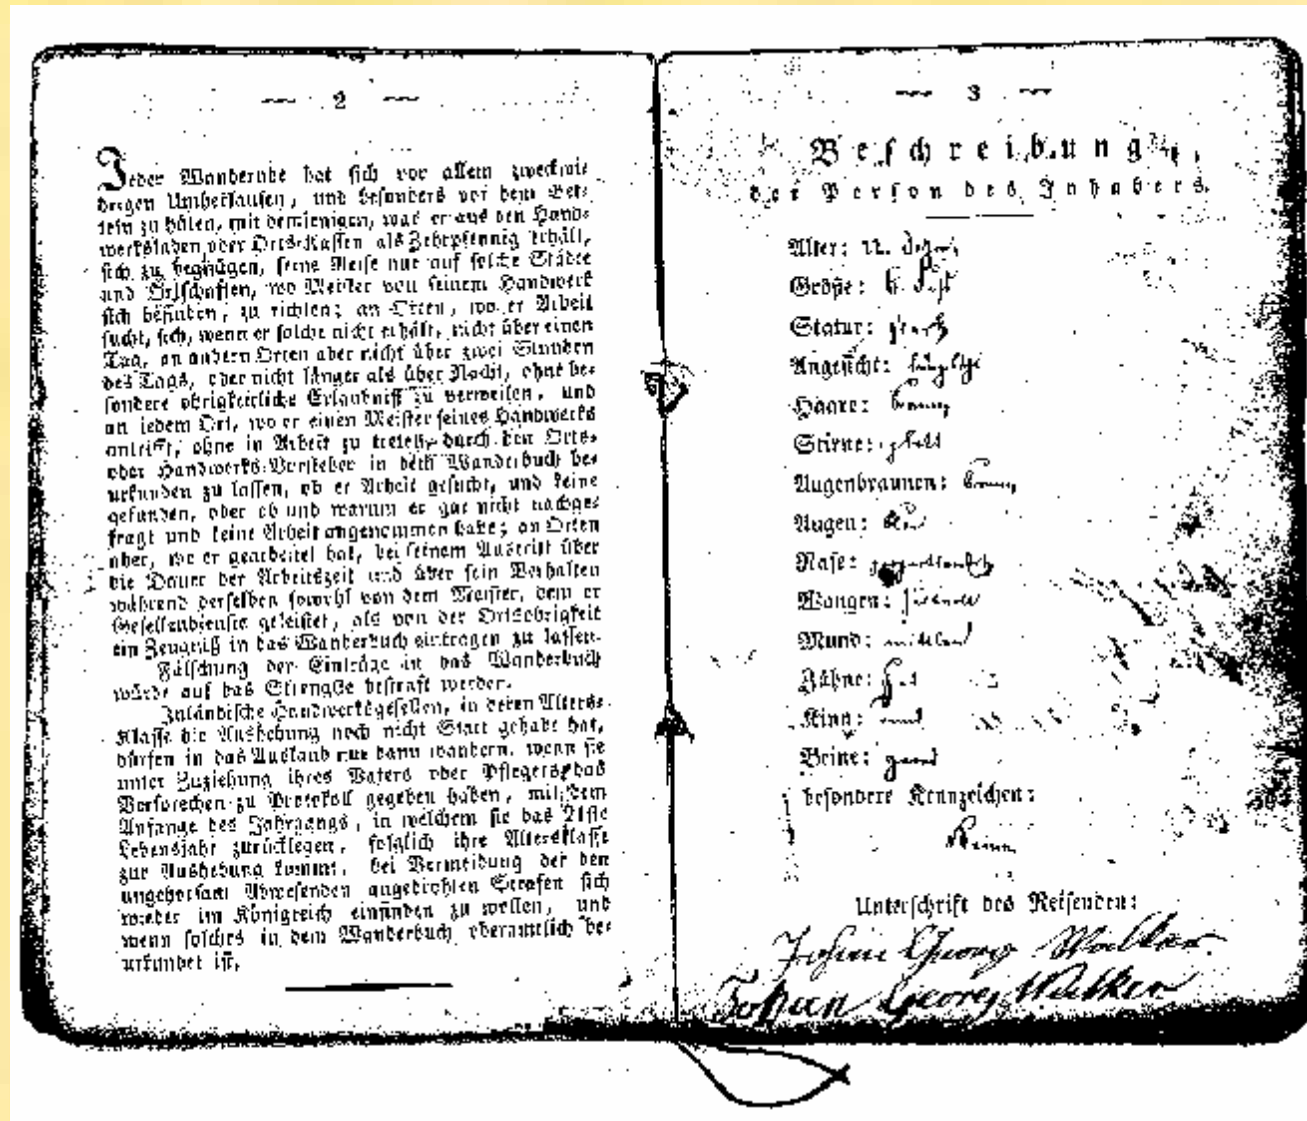 2
Jeder Wandernde hat sich vor allem zweckwi-
drigen Umherlaufen, und besonders vor dem Bet-
teln zu hüten, mit demjenigen, was er aus den Hand-
werksladen oder Orts-Kassen als Zehrpfennig erhält,
sich zu begnügen, seine Reise nur auf solche Städte
und Ortschaften, wo Meister von seinem Handwerk
sich befinden, zu richten; an Orten, wo er Arbeit
sucht, sich, wenn er solche nicht erhält, nicht über einen
Tag, an andern Orten aber nicht über zwei Stunden
des Tags, oder nicht länger als über Nacht, ohne be-
sondere obrigkeitliche Erlaubniß zu verweilen, und
an jedem Ort, wo er einen Meister seines Handwerks
antrifft, ohne in Arbeit zu treten, durch den Orts-
oder Handwerks-Vorsteher in dem Wanderbuch be-
urkunden zu lassen, ob er Arbeit gesucht, und keine
gefunden, oder ob und warum er gar nicht nachge-
fragt und keine Arbeit angenommen habe; an Orten
aber, wo er gearbeitet hat, bei seinem Austritt über
die Dauer der Arbeitszeit und über sein Verhalten
während derselben sowohl von dem Meister, dem er
Gesellendienste geleistet, als von der Ortsobrigkeit
ein Zeugniß in das Wanderbuch eintragen zu lassen.
Fälschung der Einträge in das Wanderbuch
würde auf das Strengste bestraft werden.
Inländische Handwerksgesellen, in deren Alters-
Klasse die Aushebung noch nicht Statt gehabt hat,
dürfen in das Ausland nur dann wandern, wenn sie
unter Zuziehung ihres Vaters oder Pflegers das
Versprechen zu Protokoll gegeben haben, mit dem
Anfange des Jahrgangs, in welchem sie das 21ste
Lebensjahr zurücklegen, folglich ihre Altersklasse
zur Aushebung kommt, bei Vermeidung der den
ungehorsam Abwesenden angedrohten Strafen sich
wieder im Königreich einfinden zu wollen, und
wenn solches in dem Wanderbuch oberamtlich be-
urkundet ist.
3
Beschreibung
der Person des Inhabers.
Alter:
Größe: 6
Statur: stark
Angesicht: länglicht
Haare: braun
Stirne: glatt
Augenbraunen: braun
Augen:
Nase:
Wangen:
Mund: mittel
Zähne: gut
Kinn: rund
Beine: grad
besondere Kennzeichen:
Keine
Unterschrift des Reisenden:
Johann Georg Walker
Johann Georg Walker